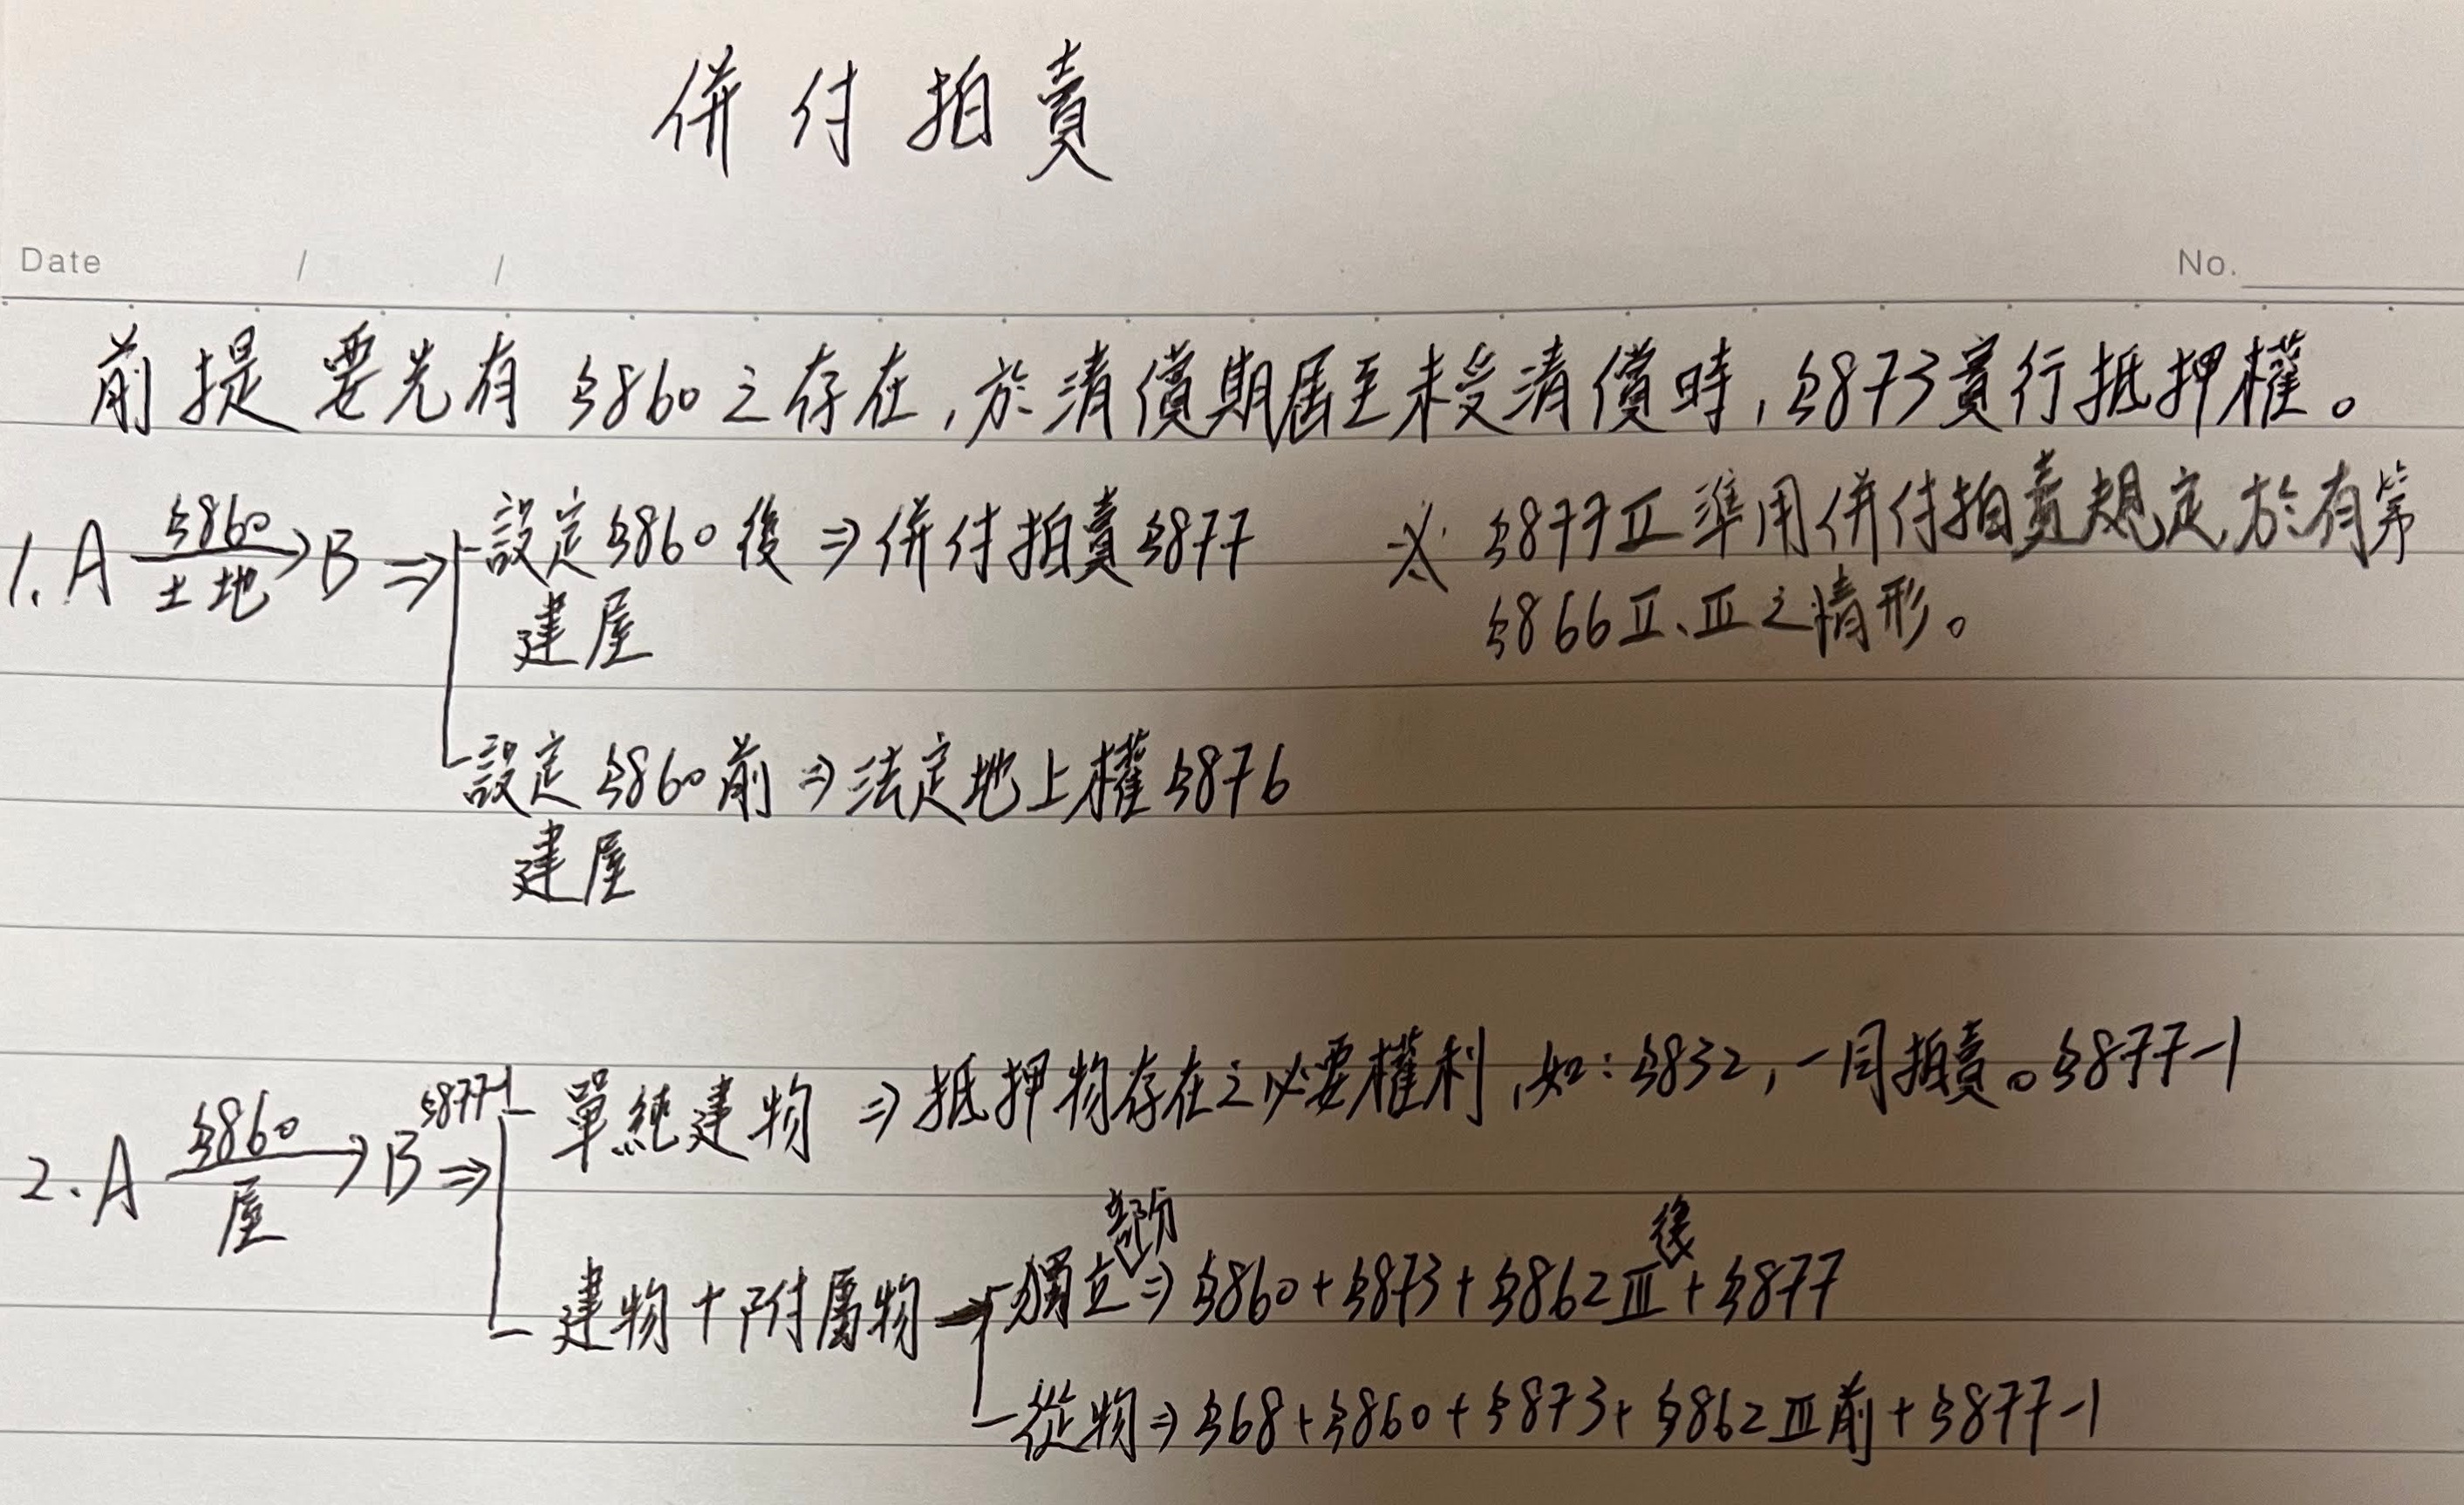 併付拍賣
Date / / No.
前提要先有§860之存在,於清償期屆至未受清償時,§873實行抵押權。
1. A §860 土地 B ⇒ 設定§860後 ⇒ 併付拍賣§877
建屋
※ §877Ⅱ準用併付拍賣規定,於有第
§866Ⅱ、Ⅲ之情形。
設定§860前 ⇒ 法定地上權§876
建屋
2. A §860 屋 B ⇒ §877-1 單純建物 ⇒ 抵押物存在之必要權利,如:§832,一同拍賣。§877-1
建物+附屬物 獨立部分 ⇒ §860+§873+§862Ⅲ後+§877
從物 ⇒ §68+§860+§873+§862Ⅲ前+§877-1